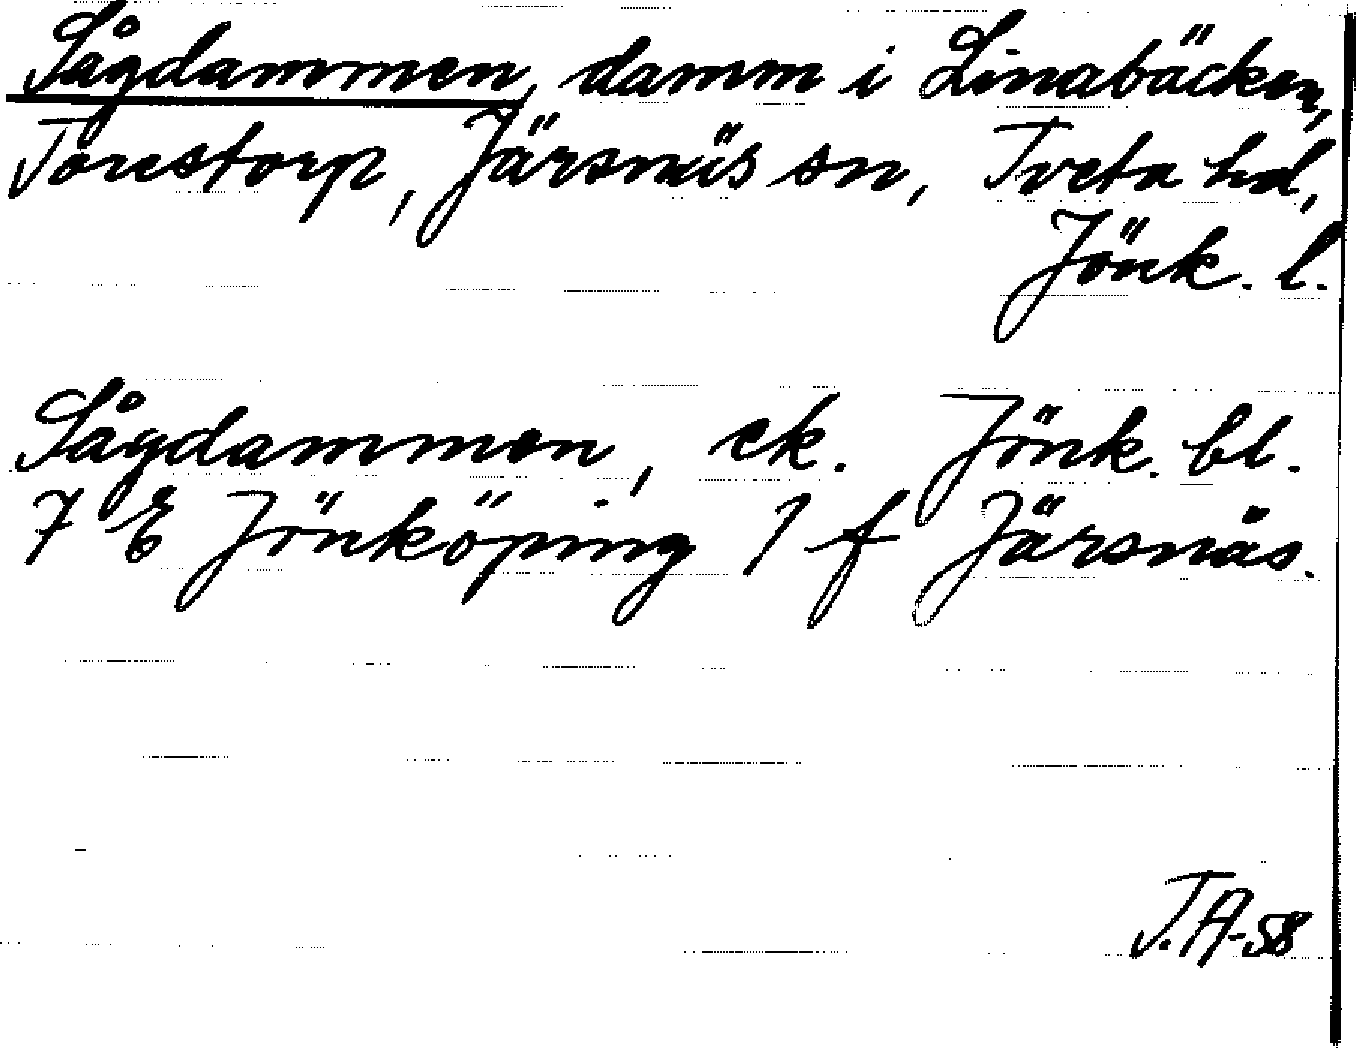 Sågdammen, damm i Linabäcken,
Torestorp, Järsnäs sn, Tveta hd,
Jönk. l.
Sågdammen, ek. Jönk. bl.
7 E Jönköping 1 f Järsnäs.
T.A-58